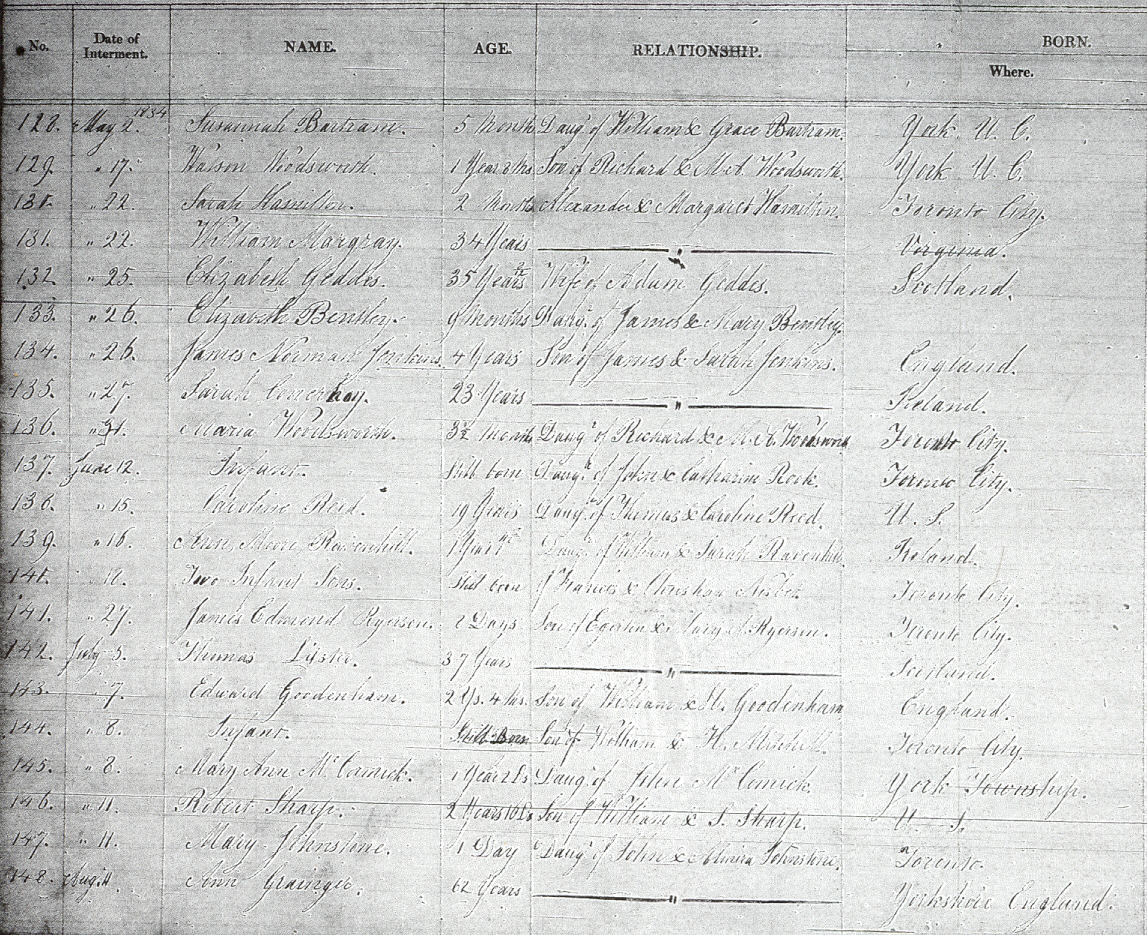 No. Date of Interment. NAME. AGE. RELATIONSHIP. BORN. Where.
128. May 2. 1834 Susannah Bartram. 5 Month Daug. of William & Grace Bartram. York U. C.
129. " 17. Watson Wodsworth. 1 Year 8 Ms Son of Richard & M. A. Woodsworth. York U. C.
131. " 22. Sarah Hamilton. 2 Months Alexander & Margaret Hamilton. Toronto City.
131. " 22. William Margray. 34 Years " Virginia.
132. " 25. Elizabeth Geddes. 35 Years Wife of Adam Geddes. Scotland.
133. " 26. Elizabeth Bentley. 9 Months Daug. of James & Mary Bentley.
134. " 26. James Norman Jenkins. 4 Years Son of James & Sarah Jenkins. England.
135. " 27. Sarah 23 Years " Ireland.
136. " 31. Maria Woodsworth. 3½ Months Daug. of Richard & M. A. Woodsworth Toronto City.
137. June 12. Infant. Still born Daug. of John & Catharine Rook. Toronto City.
138. " 15. Caroline Reed. 19 Years Daug. of Thomas & Caroline Reed. U. S.
139. " 16. Ann Moore Ravenhill. 1 Year Daug. of William & Sarah Ravenhill. Ireland.
141. Two Infant Sons. Still born of Francis & Toronto City.
141. " 27. James Edmond Ryerson. 2 Days Son of Egerton & Ryerson. Toronto City.
142. July 5. Thomas Lyster. 37 Years " Scotland.
143. " 7. Edward Goodenham. 2 Ys. 4 Ms. Son of William & H. Goodenham England.
144. " 8. Infant. Still Born Son of William & H. Michel. Toronto City
145. " 8. Mary Ann McCormick. 1 Year Daug. of John McCormick. York Township.
146. " 11. Robert Sharp. 2 Years Son of William & S. Sharp. U. S.
147. " 11. Mary Johnstone. 1 Day Daug. of John & Almira Johnstone. Toronto.
148. Aug. 4. Ann Grainger. 62 Years " Yorkshire England.